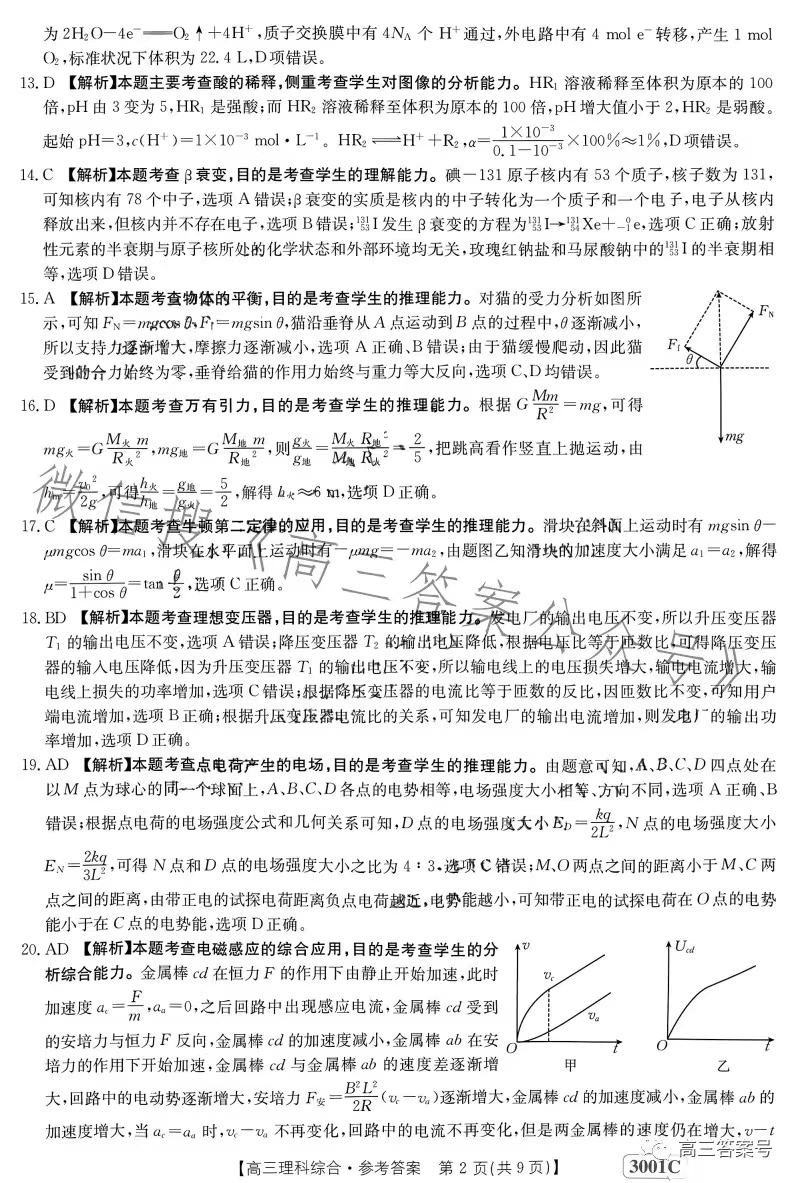 为 2H₂O−4e⁻══O₂↑+4H⁺,质子交换膜中有 4N_A 个 H⁺ 通过,外电路中有 4 mol e⁻ 转移,产生 1 mol
O₂,标准状况下体积为 22.4 L,D项错误。
13. D 【解析】本题主要考查酸的稀释,侧重考查学生对图像的分析能力。HR₁ 溶液稀释至体积为原本的 100
倍,pH 由 3 变为 5,HR₁ 是强酸;而 HR₂ 溶液稀释至体积为原本的 100 倍,pH 增大值小于 2,HR₂ 是弱酸。
起始 pH=3,c(H⁺)=1×10⁻³ mol·L⁻¹。HR₂⇌H⁺+R₂,α=(1×10⁻³)/(0.1−10⁻³)×100%≈1%,D项错误。
14. C 【解析】本题考查 β 衰变,目的是考查学生的理解能力。碘−131 原子核内有 53 个质子,核子数为 131,
可知核内有 78 个中子,选项 A 错误;β 衰变的实质是核内的中子转化为一个质子和一个电子,电子从核内
释放出来,但核内并不存在电子,选项 B 错误;¹³¹₅₃I 发生 β 衰变的方程为¹³¹₅₃I→¹³¹₅₄Xe+⁰₋₁e,选项 C 正确;放射
性元素的半衰期与原子核所处的化学状态和外部环境均无关,玫瑰红钠盐和马尿酸钠中的¹³¹₅₃I 的半衰期相
等,选项 D 错误。
15. A 【解析】本题考查物体的平衡,目的是考查学生的推理能力。对猫的受力分析如图所
示,可知 F_N=mgcos θ,F_f=mgsin θ,猫沿垂脊从 A 点运动到 B 点的过程中,θ 逐渐减小,
所以支持力逐渐增大,摩擦力逐渐减小,选项 A 正确、B 错误;由于猫缓慢爬动,因此猫
受到的合力始终为零,垂脊给猫的作用力始终与重力等大反向,选项 C、D 均错误。
F_N
F_f
θ
mg
16. D 【解析】本题考查万有引力,目的是考查学生的推理能力。根据 G Mm/R²=mg,可得
mg火=G M火m/R火²,mg地=G M地m/R地²,则 g火/g地=M火R地²/M地R火²=2/5,把跳高看作竖直上抛运动,由
h=v₀²/2g,可得 h火/h地=g地/g火=5/2,解得 h火≈6 m,选项 D 正确。
17. C 【解析】本题考查牛顿第二定律的应用,目的是考查学生的推理能力。滑块在斜面上运动时有 mgsin θ−
μmgcos θ=ma₁,滑块在水平面上运动时有−μmg=−ma₂,由题图乙知滑块的加速度大小满足 a₁=a₂,解得
μ=sin θ/(1+cos θ)=tan θ/2,选项 C 正确。
18. BD 【解析】本题考查理想变压器,目的是考查学生的推理能力。发电厂的输出电压不变,所以升压变压器
T₁ 的输出电压不变,选项 A 错误;降压变压器 T₂ 的输出电压降低,根据电压比等于匝数比,可得降压变压
器的输入电压降低,因为升压变压器 T₁ 的输出电压不变,所以输电线上的电压损失增大,输电电流增大,输
电线上损失的功率增加,选项 C 错误;根据降压变压器的电流比等于匝数的反比,因匝数比不变,可知用户
端电流增加,选项 B 正确;根据升压变压器电流比的关系,可知发电厂的输出电流增加,则发电厂的输出功
率增加,选项 D 正确。
19. AD 【解析】本题考查点电荷产生的电场,目的是考查学生的推理能力。由题意可知,A、B、C、D 四点处在
以 M 点为球心的同一个球面上,A、B、C、D 各点的电势相等,电场强度大小相等、方向不同,选项 A 正确、B
错误;根据点电荷的电场强度公式和几何关系可知,D 点的电场强度大小 E_D=kq/2L²,N 点的电场强度大小
E_N=2kq/3L²,可得 N 点和 D 点的电场强度大小之比为 4∶3,选项 C 错误;M、O 两点之间的距离小于 M、C 两
点之间的距离,由带正电的试探电荷距离负点电荷越近,电势能越小,可知带正电的试探电荷在 O 点的电势
能小于在 C 点的电势能,选项 D 正确。
20. AD 【解析】本题考查电磁感应的综合应用,目的是考查学生的分
析综合能力。金属棒 cd 在恒力 F 的作用下由静止开始加速,此时
加速度 a_c=F/m,a_a=0,之后回路中出现感应电流,金属棒 cd 受到
的安培力与恒力 F 反向,金属棒 cd 的加速度减小,金属棒 ab 在安
培力的作用下开始加速,金属棒 cd 与金属棒 ab 的速度差逐渐增
v
v_c
v_a
O
t
甲
U_cd
O
t
乙
大,回路中的电动势逐渐增大,安培力 F安=B²L²/2R(v_c−v_a)逐渐增大,金属棒 cd 的加速度减小,金属棒 ab 的
加速度增大,当 a_c=a_a 时,v_c−v_a 不再变化,回路中的电流不再变化,但是两金属棒的速度仍在增大,v−t
【高三理科综合·参考答案 第 2 页(共 9 页)】
3001C
微信搜《高三答案公众号》
高三答案号